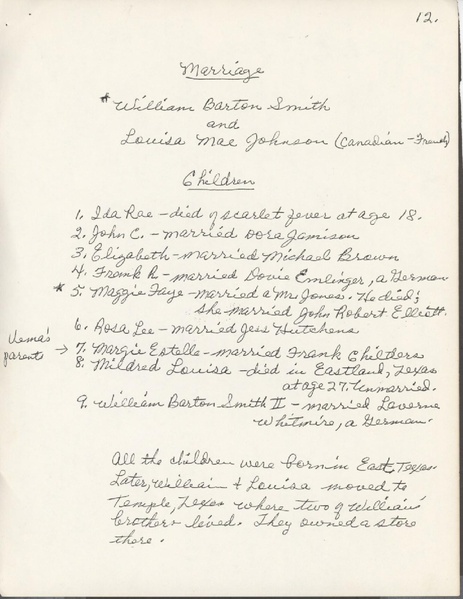 12.
Marriage
* William Barton Smith
and
Louisa Mae Johnson (Canadian-French)
Children
1. Ida Rae - died of scarlet fever at age 18.
2. John C. - married Dora Jamison
3. Elizabeth - married Michael Brown
4. Frank R - married Dovie Emlinger, a German
* 5. Maggie Faye - married a Mr. Jones. He died;
she married John Robert Elliott.
6. Rosa Lee - married Jess Hutchens
Uema's parents → 7. Margie Estelle - married Frank Childers
8. Mildred Louisa - died in Eastland, Texas
at age 27. Unmarried.
9. William Barton Smith II - married Laverne
Whitmire, a German.
All the children were born in East Texas.
Later, William & Louisa moved to
Temple, Texas where two of William's
brothers lived. They owned a store
there.